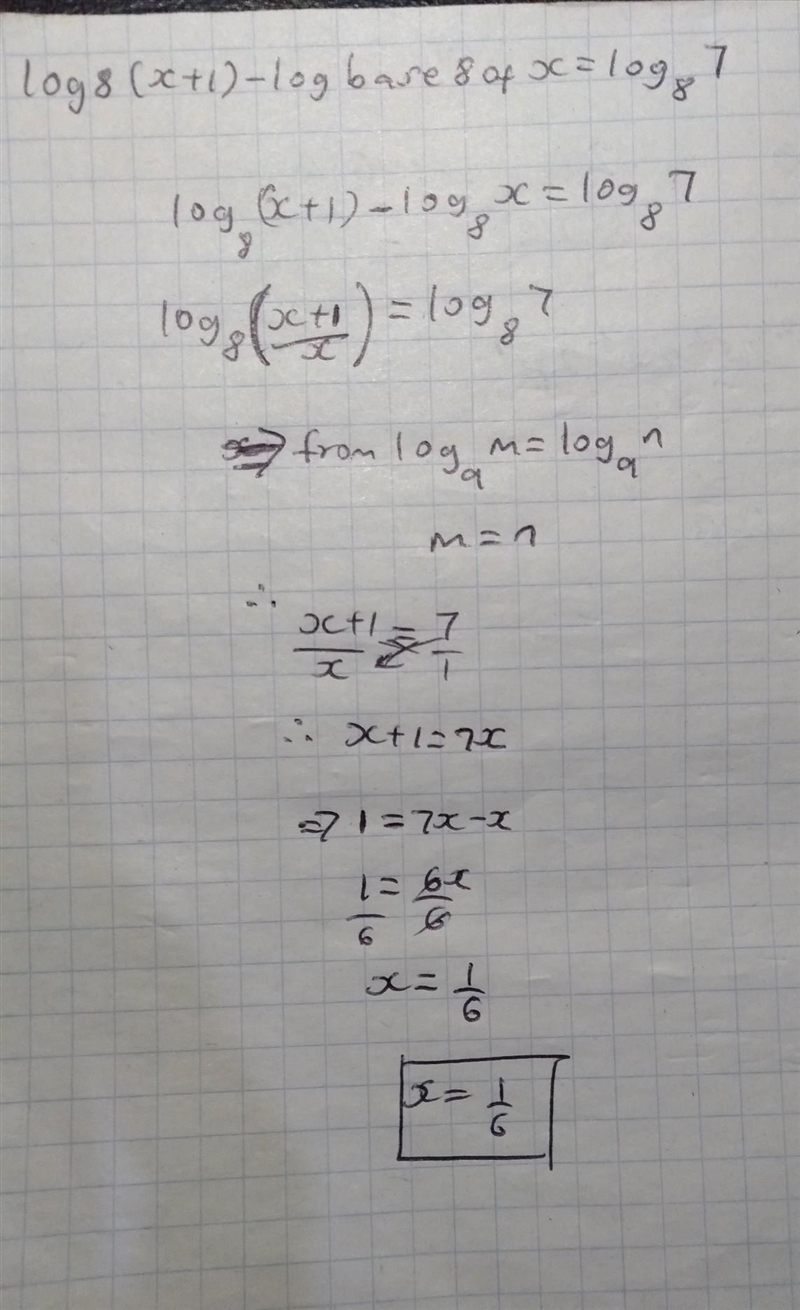 log 8 (x+1) - log base 8 of x = log₈ 7
log₈(x+1) - log₈ x = log₈ 7
log₈((x+1)/x) = log₈ 7
⇒ from logₐ m = logₐ n
m = n
∴
(x+1)/x = 7/1
∴ x+1 = 7x
⇒ 1 = 7x - x
1/6 = 6x/6
x = 1/6
x = 1/6